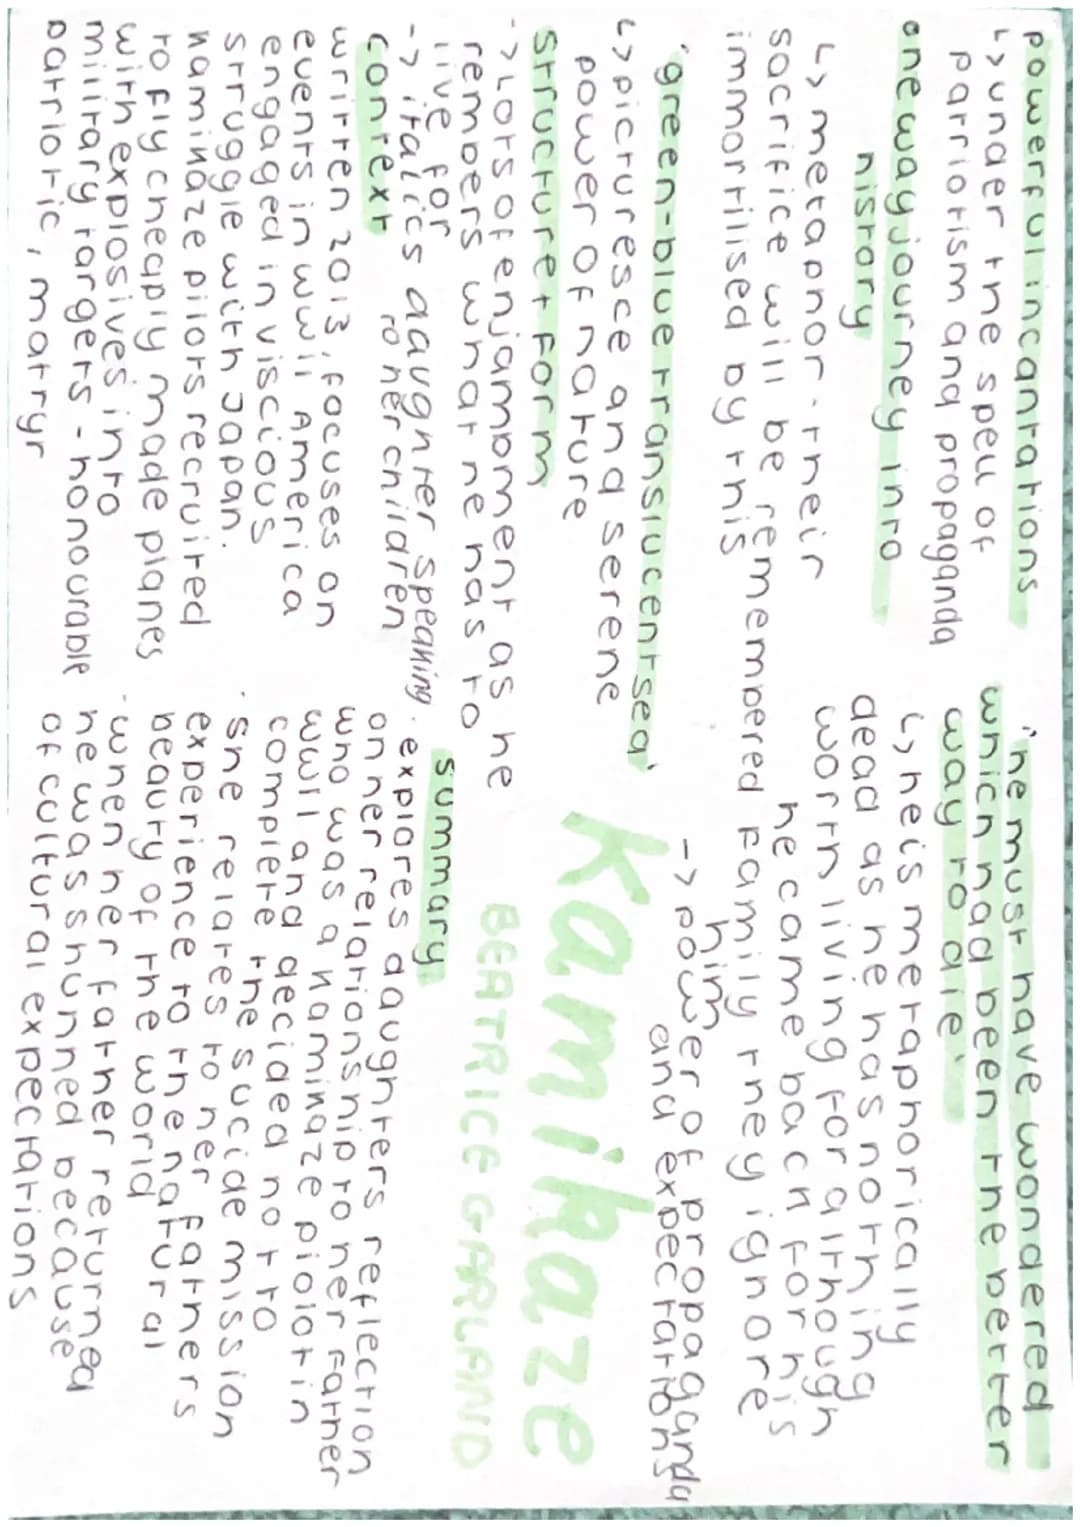 powerful incantations
↳ under the spell of
patriotism and propaganda
one way journey into
history
↳ metaphor - their
sacrifice will be remembered
immortilised by this
'green-blue translucent sea'
↳ picturesce and serene
power of nature
structure + form
-> lots of enjamboment as he
rembers what he has to
live for
-> italics daughter speaking
to her children
context
written 2013, focuses on
events in WWII America
engaged in viscious
struggle with Japan.
kaminaze pilots recruited
to fly cheaply made planes
with explosives into
military targets - honourable
patriotic, matryr
"he must have wondered
which had been the better
way to die'
↳ he is metaphorically
dead as he has nothing
worth living for although
he came back for his
family they ignore
him
-> power of propaganda
and expectations
Kamikaze
BEATRICE GARLAND
summary
· explores daughters reflection
on her relationship to her father
who was a kaminaze pilot in
WWII and decided not to
complete the sucide mission
· she relates to her fathers
experience to the natural
beauty of the world
· when her father returned
he was shunned because
of cultural expectations